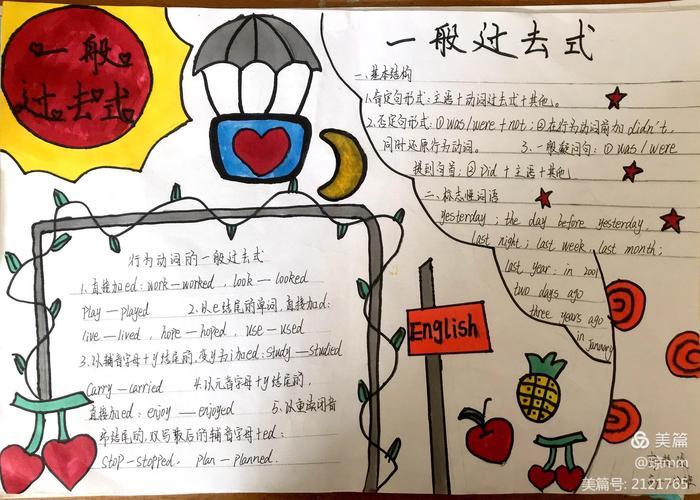 一般
过去式
一般过去式
一、基本结构
1.肯定句形式:主语+动词过去式+其他。
2.否定句形式:①was/were+not;②在行为动词前加didn't,
同时还原行为动词。 3.一般疑问句:①was/were
提到句首;②Did+主语+其他
二、标志性词语
yesterday;the day before yesterday,
last night;last week,last month;
last year;in 2001
two days ago
three years ago
in January
行为动词的一般过去式
1.直接加ed:work—worked,look—looked
play—played 2.以e结尾的单词,直接加d:
live—lived,hope—hoped,use—used
3.以辅音字母+y结尾的,变y为i加ed:study—studied
carry—carried 4.以元音字母+y结尾的,
直接加ed:enjoy—enjoyed 5.以重读闭音
节结尾的,双写最后的辅音字母+ed:
stop—stopped,plan—planned.
English
美篇
美篇号:2121765